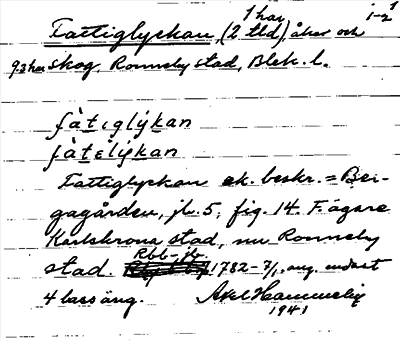 1 har 1-2¹
Fattiglyckan, (2 tld), åker och
9.3 har skog, Ronneby stad, Blek. l.
fàtiglýkan
fàtelýkan
Fattiglyckan ek. beskr. = Bei-
gagården, jb. 5, fig. 14. F. ägare
Karlskrona stad, nu Ronneby
stad. Rbl-jb 1782-7/1, ang. endast
4 lass äng. Axel Hammelig
1941